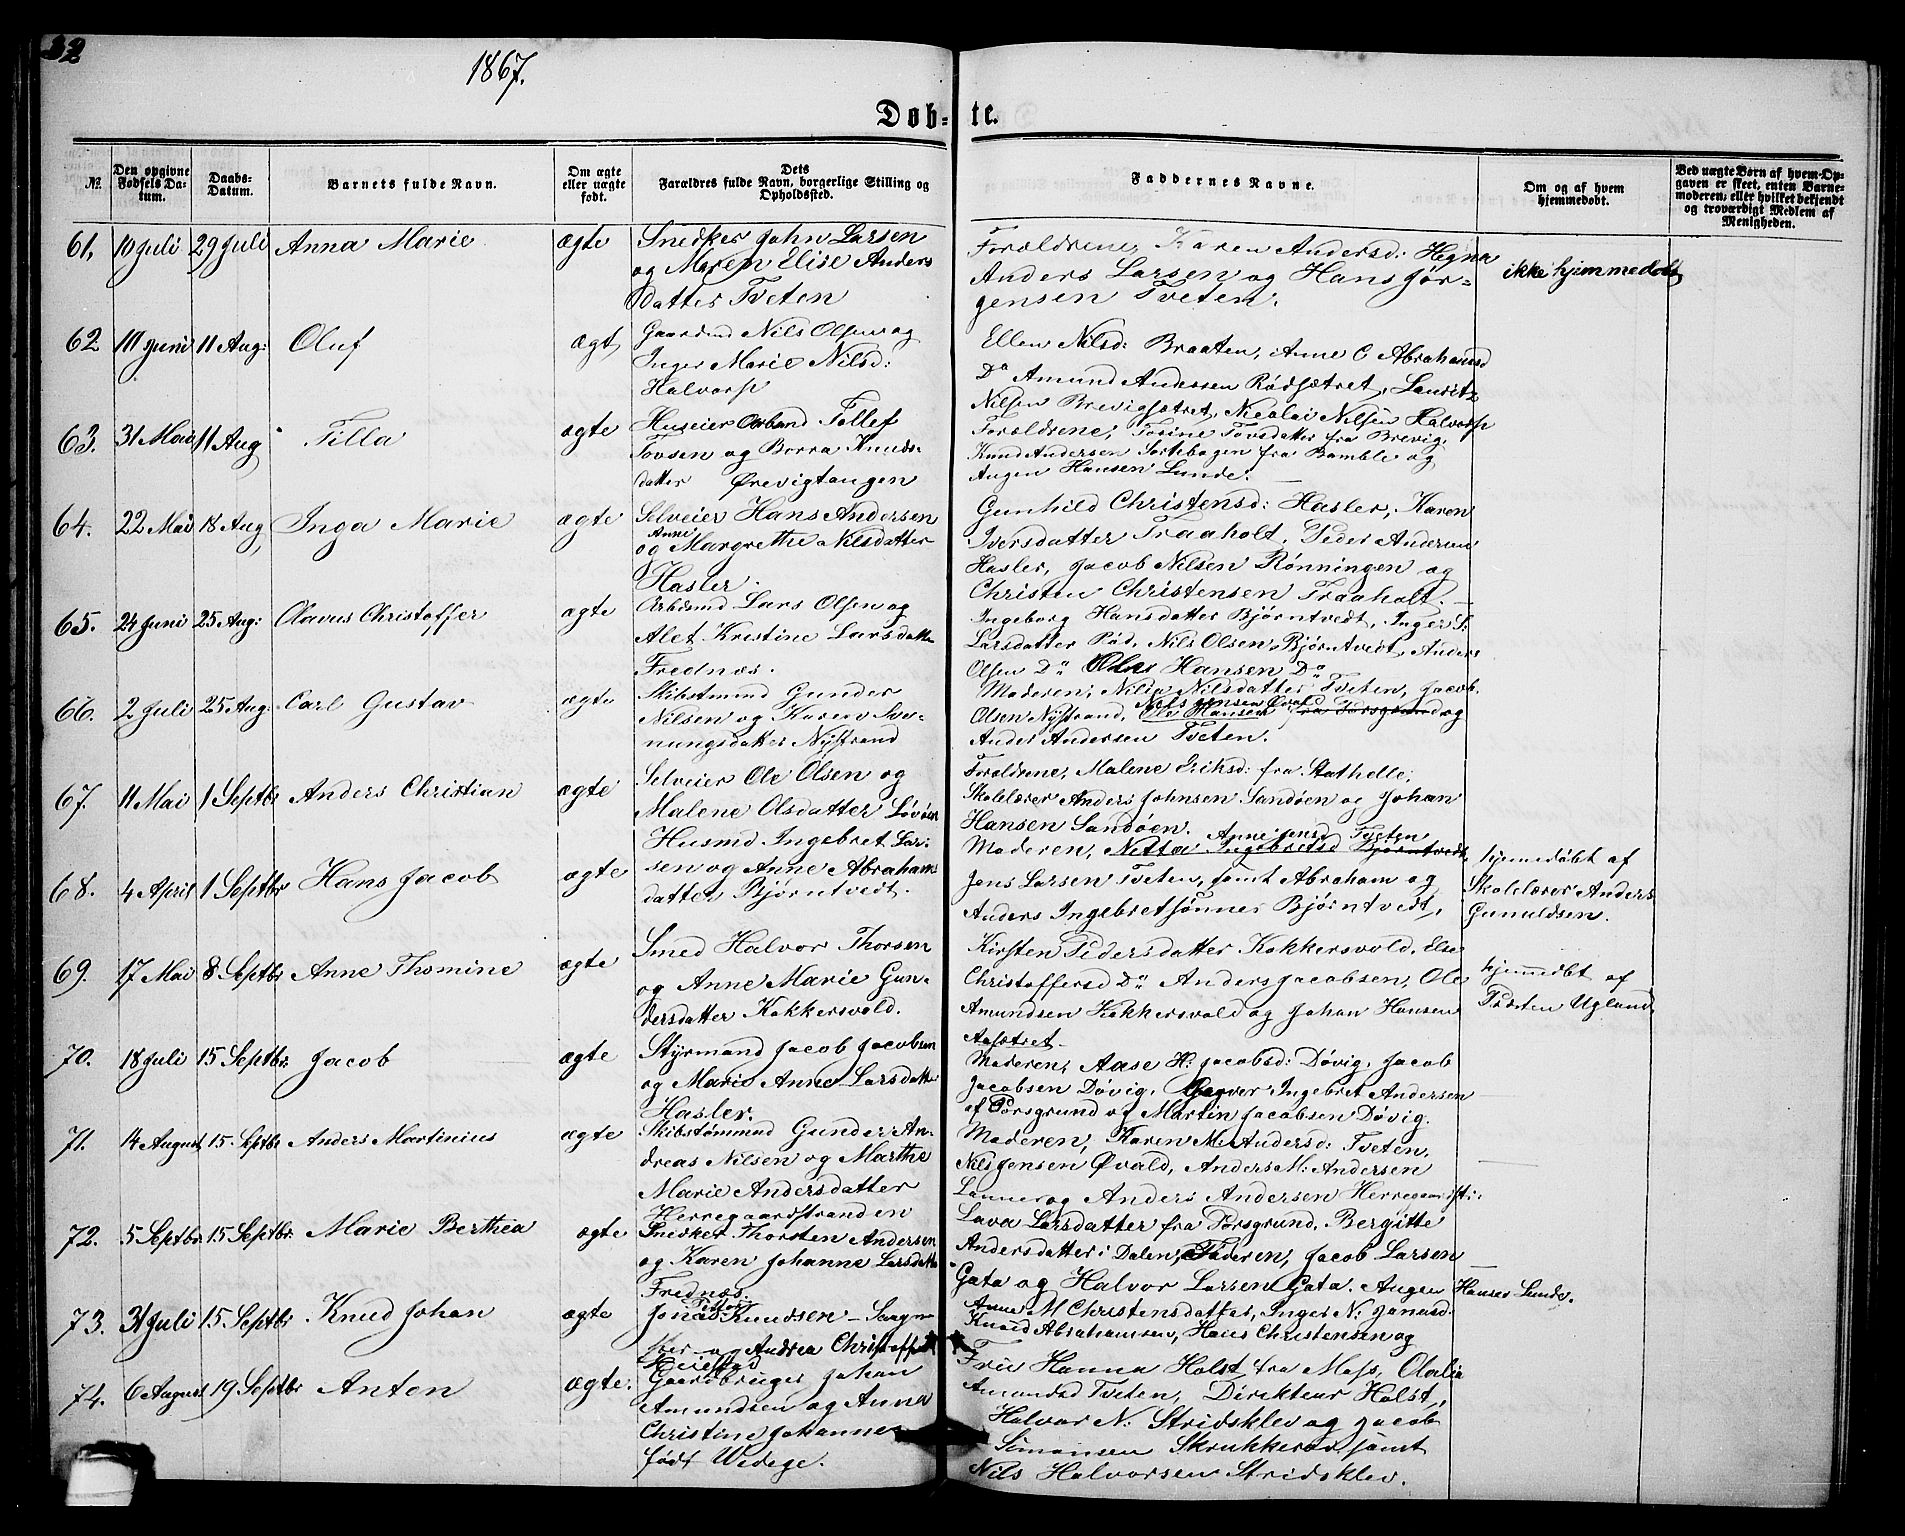 32
1867.
Døb-te.
№. Den opgivne Fødsels Datum. Daabs-Datum. Barnets fulde Navn. Om ægte eller uægte født. Dets Forældres fulde Navn, borgerlige Stilling og Opholdssted. Faddernes Navne. Om og af hvem hjemmedøbt. Ved uægte Børn af hvem Opgaven er skeet, enten Barnemoderen, eller hvilket bekjendt og troværdigt Medlem af Menigheden.
61, 10 Juli 29 Juli Anna Marie ægte Snedker John Larsen
og Maren Elise Anders
datter Tveten
Forældrene, Karen Andersd: Hegna
Anders Larsen og Hans Jør=
gensen Tveten.
ikke hjemmedøbt
62 10 Juni 11 Aug: Oluf ægt Gaardmd Nils Olsen og
Inger Marie Nilsd:
Halvorsp
Ellen Nilsd: Braaten, Anne C Abrahamsd
Do Amund Andersen Rødsætret, Lauritz
Nilsen Brevigsætret, Nicolai Nilsen Halvorsp
63. 31 Mai 11 Aug Tilla ægte Huseier Tellef
Tovsen og Borra Knuds-
datter Ørevigtangen
Forældrene, Tosine Tovsdatter fra Brevig,
Knud Andersen fra Bamble og
Augen Hansen Lunde.
64. 22 Mai 18 Aug Inga Marie ægte Selveier Hans Andersen
og Anne Margrethe Nilsdatter
Hasler.
Gunhild Christensd: Hasler, Karen
Iversdatter Traaholt, Peder Andersen
Hasler, Jacob Nilsen Rønningen og
Christen Christensen Traaholt.
65. 24 Juni 25 Aug: Olavus Christoffer ægte Arbeidsmd Lars Olsen og
Alet Kristine Larsdatter
Frednæs.
Ingeborg Hansdatter Bjørntvedt, Inger S:
Larsdatter Rød, Nils Olsen Bjørntvedt, Anders
Olsen Do Hansen Do
66. 2 Juli 25 Aug: Carl Gustav ægte Skibstmmd Gunder
Nilsen og Karen Sve-
nungsdatter Nystrand
Moderen, Nilsdatter Tveten, Jacob
Olsen Nystrand, Nils Jensen Øvald Ole Hansen fra Porsgrund og
Anders Andersen Tveten.
67. 11 Mai 1 Septbr Anders Christian ægte Selveier Ole Olsen og
Malene Olsdatter Løvøen
Forældrene, Malene Eriksd: fra Stathelle,
Skolelærer Anders Johnsen Sandøen og Johan
Hansen Sandøen.
68. 4 April 1 Septbr Hans Jacob ægte Husmd Ingebret Lar-
sen og Anne Abrahams
datter Bjørntvedt.
Moderen, Anne Jensd Tveten Netta Ingebretsd Bjørntvedt,
Jens Larsen Tveten, samt Abraham og
Anders Ingebretsønner Bjørntvedt,
hjemmedøbt af
Skolelærer Anders
Gunuldsen.
69. 17 Mai 8 Septbr Anne Thomine ægte Smed Halvor Thorsen
og Anne Marie Gun-
dersdatter Kokkersvold.
Kirsten Pedersdatter Kokkersvold, Else
Christoffersd Do Anders Jacobsen, Ole
Amundsen Kokkersvold og Johan Hansen
Aasætret.
hjemmdøbt af
Præsten Ugland
70. 18 Juli 15 Septbr. Jacob ægte Styrmand Jacob Jacobsen
og Marie Anne Larsdatter
Hasler.
Moderen, Aase H: Jacobsd: Døvig, Jacob
Jacobsen Døvig, Ingebret Andersen
af Porsgrund og Martin Jacobsen Døvig.
71. 14 August 15. Septbr Anders Martinius ægte Skibstømmd Gunder An-
dreas Nilsen og Marthe
Marie Andersdatter
Herregaardstranden
Moderen, Karen M: Andersd: Tveten,
Nils Jensen Øvald, Anders M: Andersen
Lanner og Anders Andersen Herregaardst:
72. 5 Septbr. 15 Septbr. Marie Berthea ægte Snedker Thorsten Andersen
og Karen Johanne Larsdatter
Frednæs.
Lava Larsdatter fra Porsgrund, Bergitte
Andersdatter i Dalen, Faderen, Jacob Larsen
Gata og Halvor Larsen Gata. Augen Hansen Lunde.
73. 31 Juli 15 Septbr Knud Johan ægte Jonas Knudsen
og Andrea Christoffersd
Anne M Christensdatter, Inger N. Jonasd:
Knud Abrahamsen, Hans Christensen og
74. 6 August 19 Septbr Anton ægte. Gaardbruger Johan
Amundsen og Anna
Christine Johanne
født Wedege.
Frue Hanna Holst fra Moss, Olalia
Amundsd Tveten, Direkteur Holst,
Halvor N. Stridsklev og Jacob
Simonsen Skrukkerød, samt
Nils Halvorsen Stridsklev.